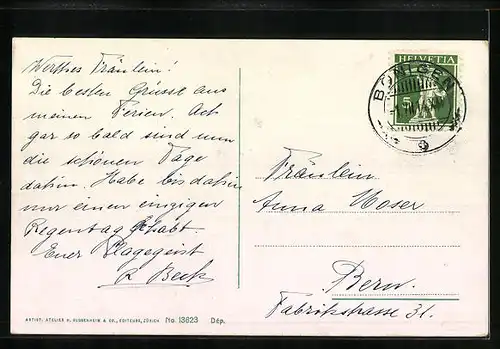 Werthes Fräulein!
Die besten Grüsse aus
meinen Ferien. Ach
gar so bald sind nun
die schönen Tage
dahin. Habe bis dahin
nur einen einzigen
Regentag gehabt.
Euer Plagegeist
R. Beck
HELVETIA
BÖNIGEN
Fräulein
Anna Moser
Bern.
Fabrikstrasse 31.
ARTIST. ATELIER H. GUGGENHEIM & CO., EDITEURS, ZÜRICH No. 13623 Dép.